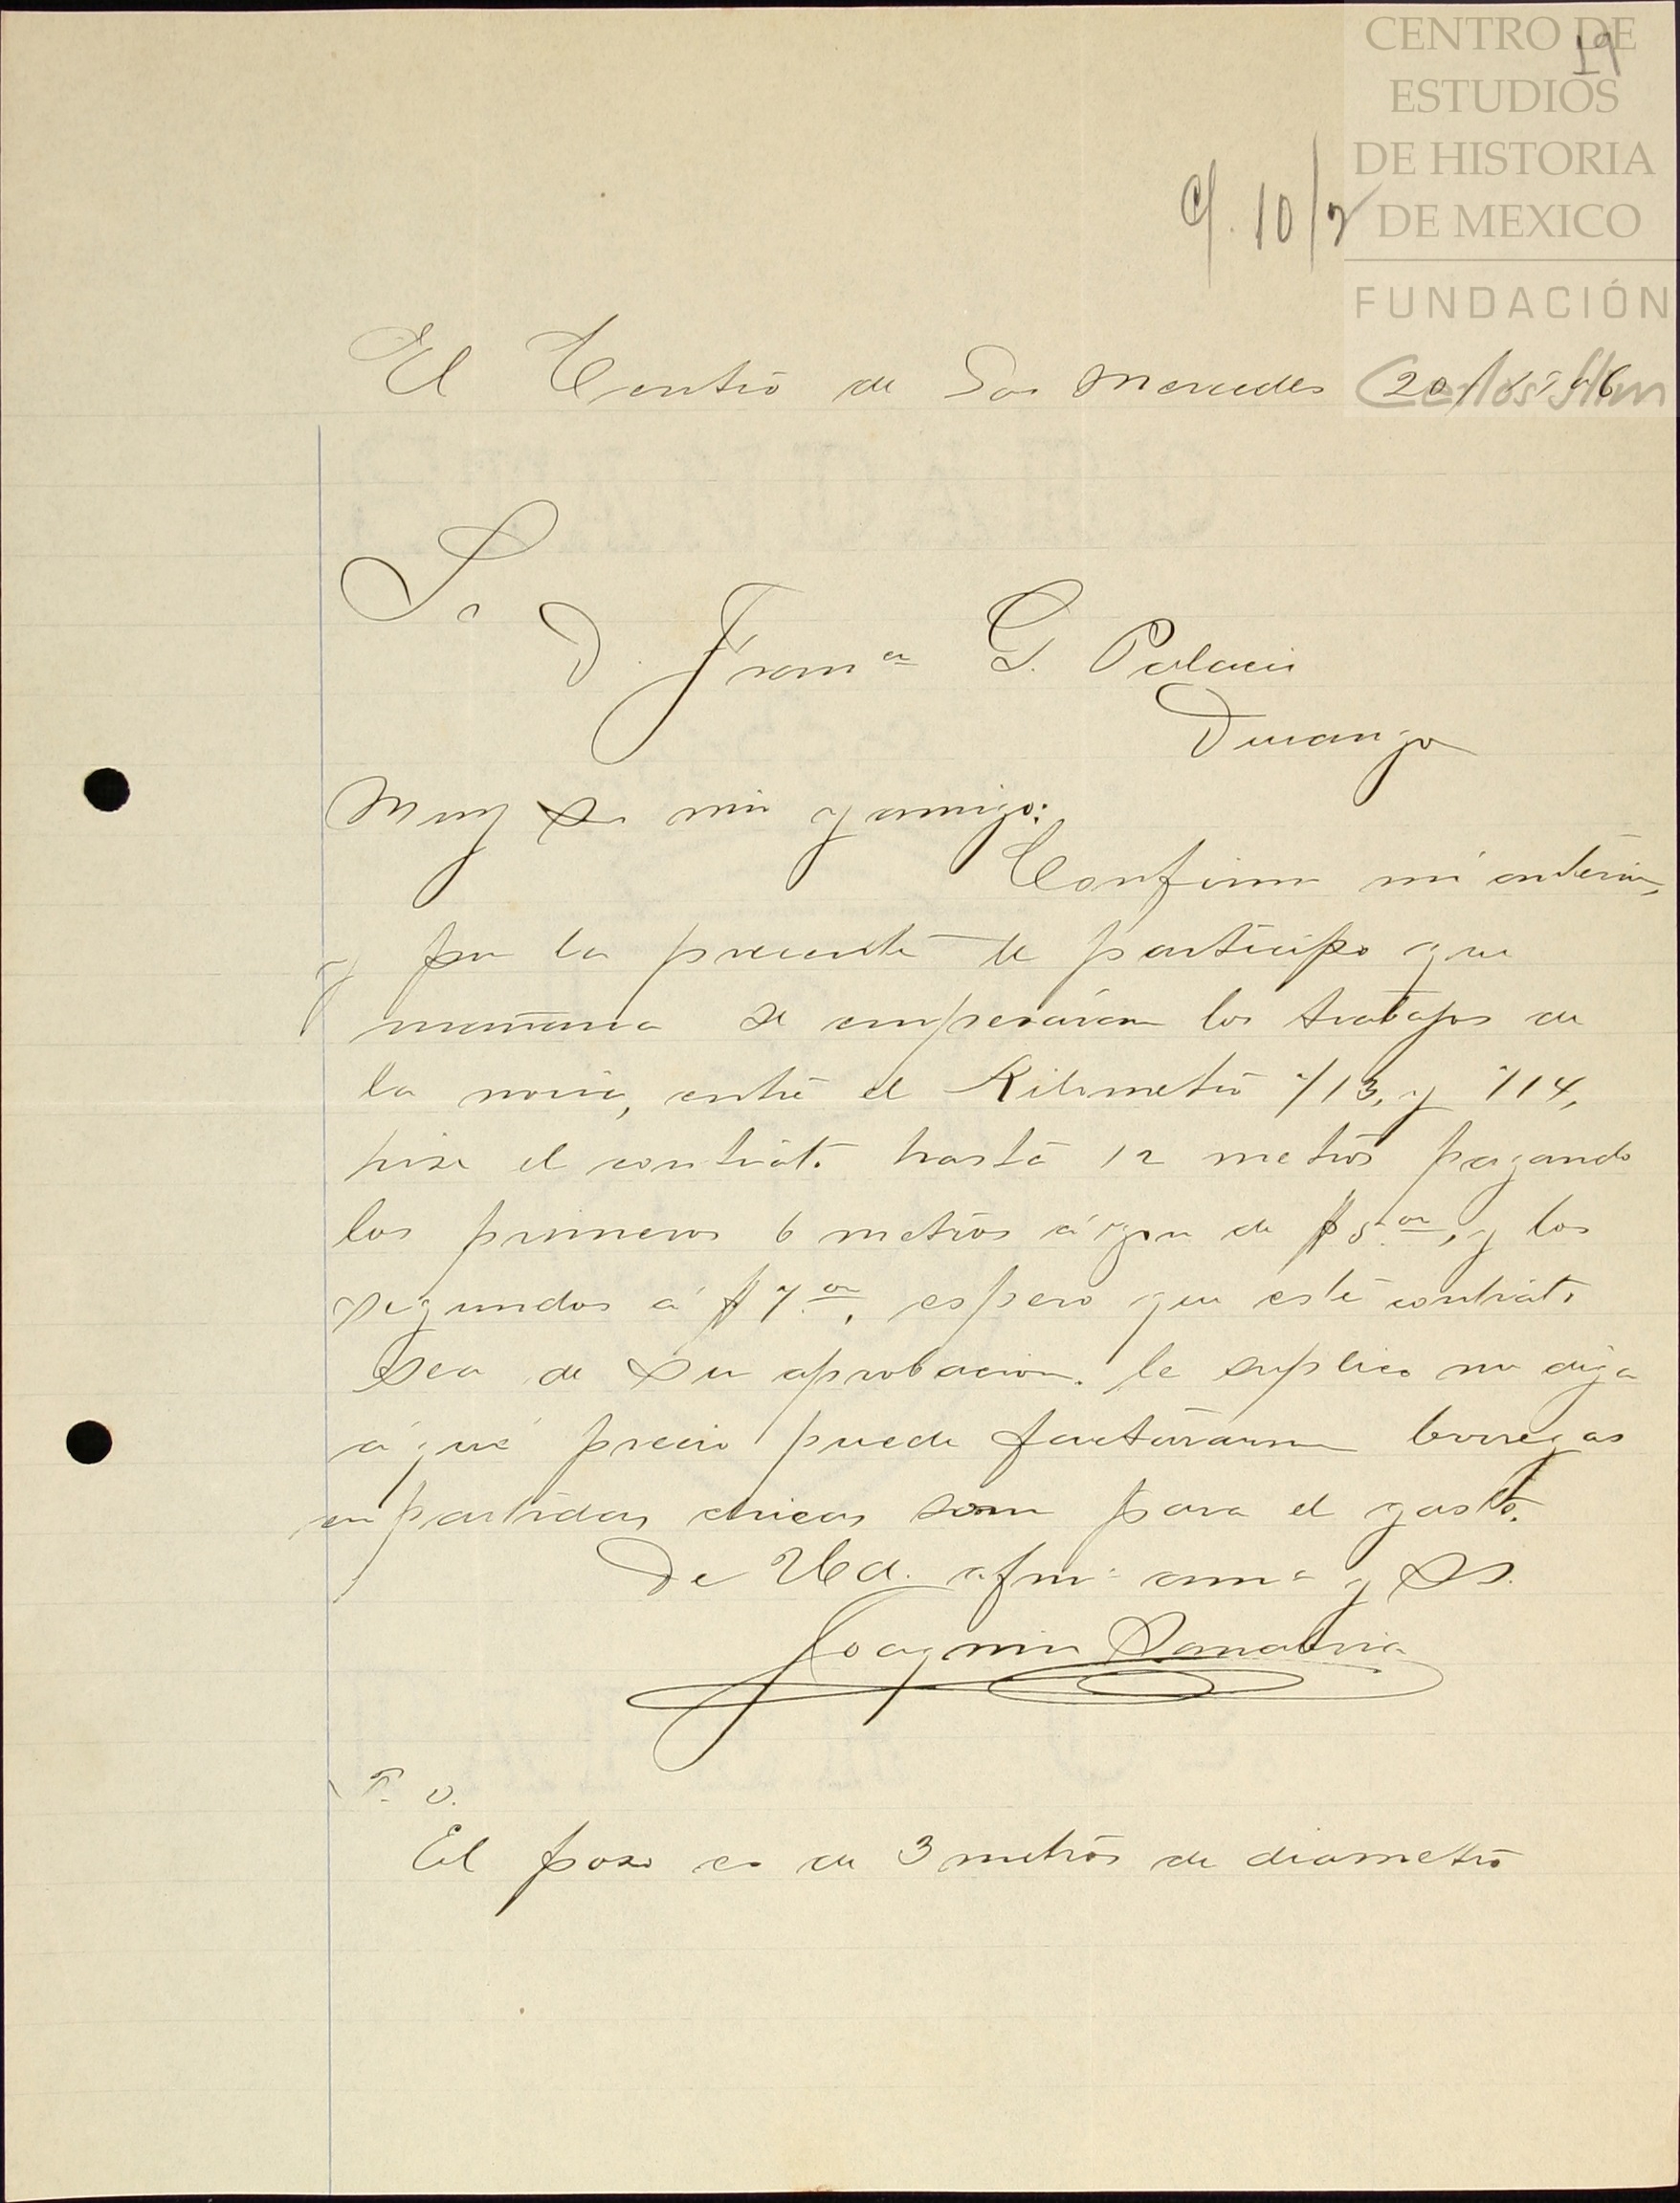 CENTRO DE
ESTUDIOS
DE HISTORIA
DE MEXICO
FUNDACIÓN
Carlos Slim
19
c/. 10/2
El Centro de Las Mercedes 20/
Sr
D. Franco G. Palacio
Durango
Muy Sr mio y amigo:
Confirmo mi anterior,
y por la presente le participo que
mañana se empezáran los trabajos de
la noria, entre el Kilometro 713, y 714,
hise el contrato hasta 12 metros pagando
los primeros 6 metros á rzon de $5.oo, y los
segundos á $7.oo, espero que este contrato
sea de su aprobacion. le suplico me diga
á que precio puede facturarme borregas
en partidas chicas som para el gasto.
De Ud. afmo amo y SS.
Joaquin Sanabria
P. D.
El poso es de 3 metros de diametro